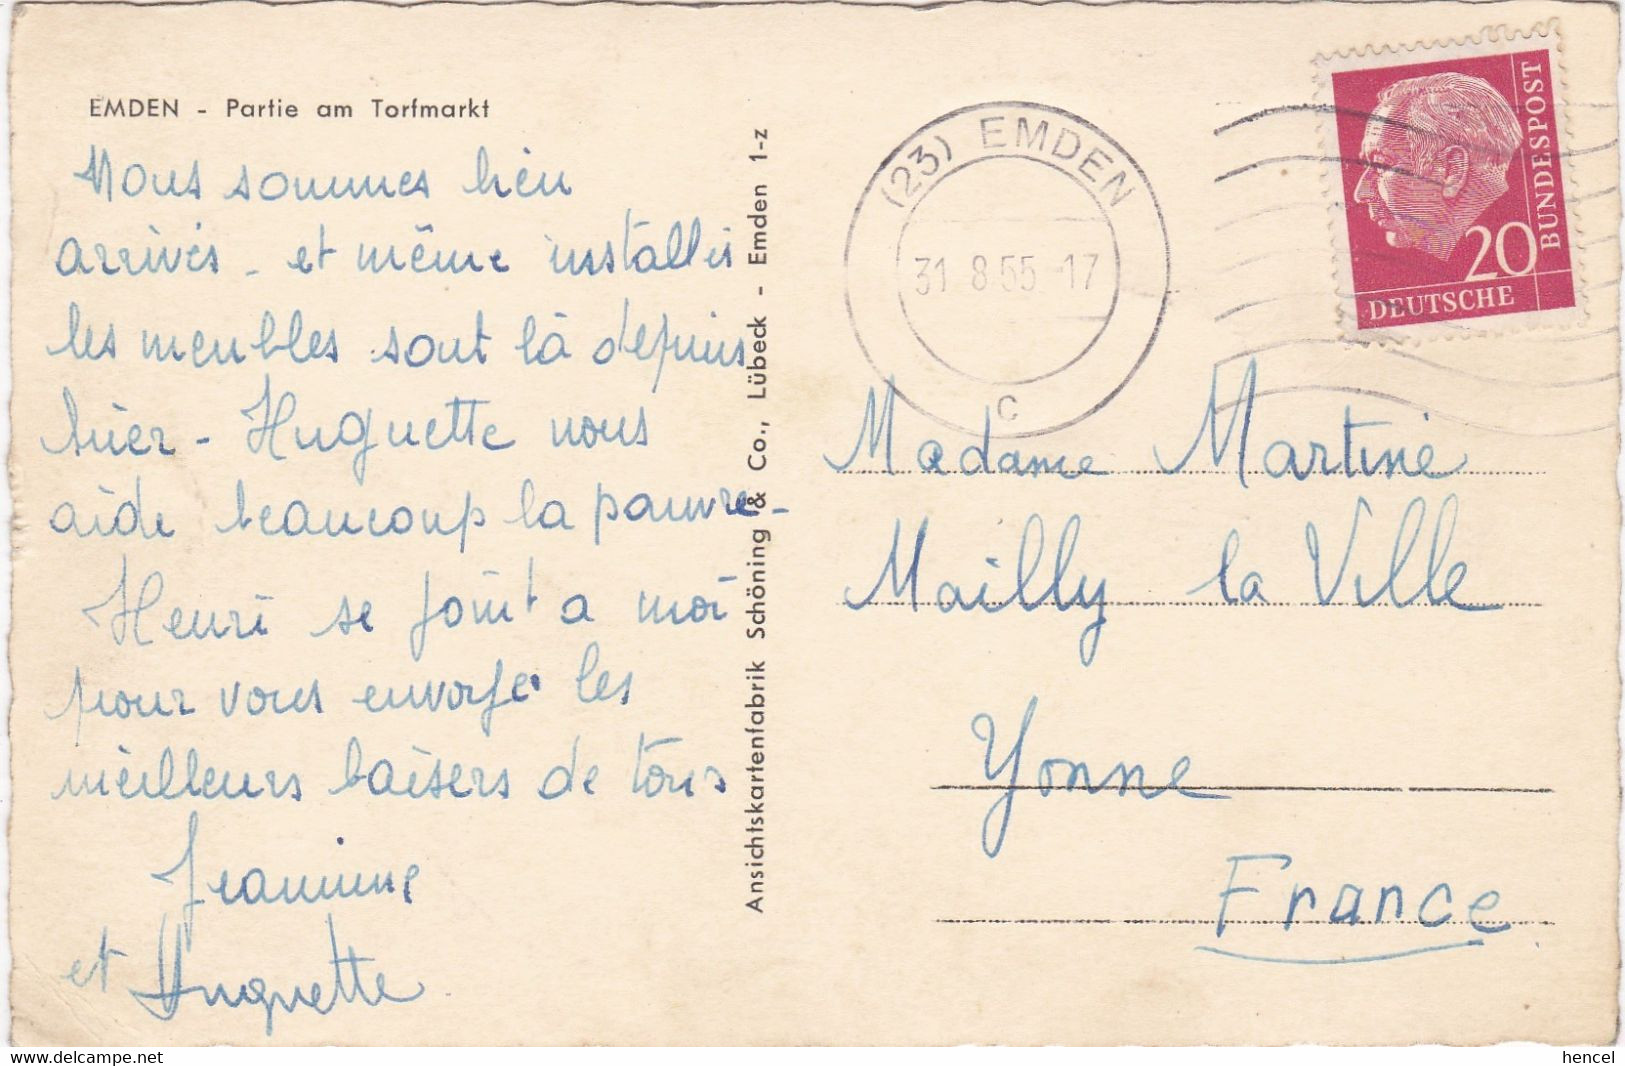 EMDEN - Partie am Torfmarkt
Nous sommes bien
arrivés - et même installés
les meubles sont là depuis
hier - Huguette nous
aide beaucoup la pauvre -
Henri se joint a moi
pour vous envoyer les
meilleurs baisers de tous
Jeannine
et Huguette
Ansichtskartenfabrik Schöning & Co., Lübeck - Emden 1-z
(23) EMDEN
31.8.55-17
c
20
DEUTSCHE
BUNDESPOST
Madame Martine
Mailly la Ville
Yonne
France
delcampe.net
hencel